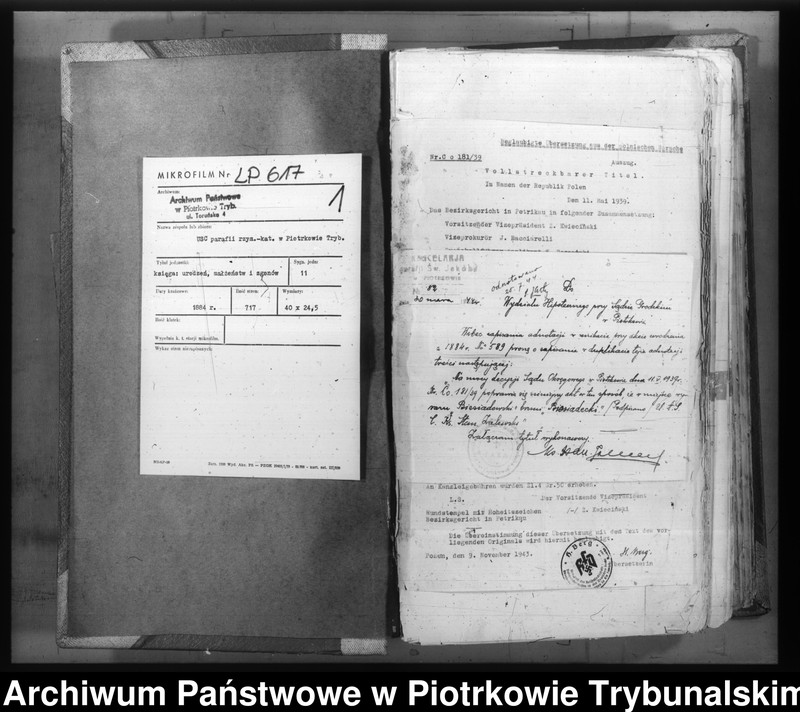 MIKROFILM Nr LP 617
1
Archiwum:
Archiwum Państwowe
w Piotrkowie Tryb.
ul. Toruńska 4
Nazwa zespołu lub zbioru:
USC parafii rzym.-kat. w Piotrkowie Tryb.
Tytuł jednostki:
księga: urodzeń, małżeństw i zgonów
Sygn. jedn:
11
Daty krańcowe:
1884 r.
Ilość stron:
717
Wymiary:
40 x 24,5
Ilość klatek:
Wypełnia k. t. stacji mikrofilm.
Wykaz stron nieczytelnych:
Beglaubigte Übersetzung aus der polnischen Sprache
Nr.C o 181/39
Auszug.
Vollstreckbarer Titel.
Im Namen der Republik Polen
Den 11. Mai 1939.
Das Bezirksgericht in Petrikau in folgender Zusammensetzung:
Vorsitzender Vizepräsident I. Kwieciński
Vizeprokurör J. Bacciarelli
KANCELARJA
Św. Jakóba
odnotowano
Do
Wydziału Hipotecznego przy Sądzie Grodzkim
w Piotrkowie
Wobec zapisania adnotacji w unikacie przy akcie urodzenia
z 1884 r. № 589 proszę o zapisanie w duplikacie tejże adnotacji
treści następującej:
"Na mocy decyzji Sądu Okręgowego w Piotrkowie dnia 11.V.1939 r.
Nr. Co. 181/39 poprawia się niniejszy akt w ten sposób, że w miejsce wy-
razu "Biesiadowski" brzmi "Biesiadecki". /Podpisano/ U.S.C.
Ks. Stan. Zalewski"
Załączam tytuł wykonawczy.
An Kanzleigebühren wurden Zl.4 Gr.50 erhoben.
L.S.
Der Vorsitzende Vizepräsident
Rundstempel mit Hoheitszeichen
/-/ I. Kwieciński
Bezirksgericht in Petrikau
Die Übereinstimmung dieser Übersetzung mit dem Text des vor-
liegenden Originals wird hiermit
Posen, den 9. November 1943.
H. Berg
Übersetzerin
Archiwum Państwowe w Piotrkowie Trybunalskim